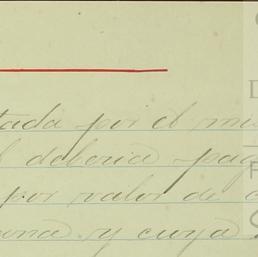 tada por el mis
l deberia pag
por valor de
una y cuya